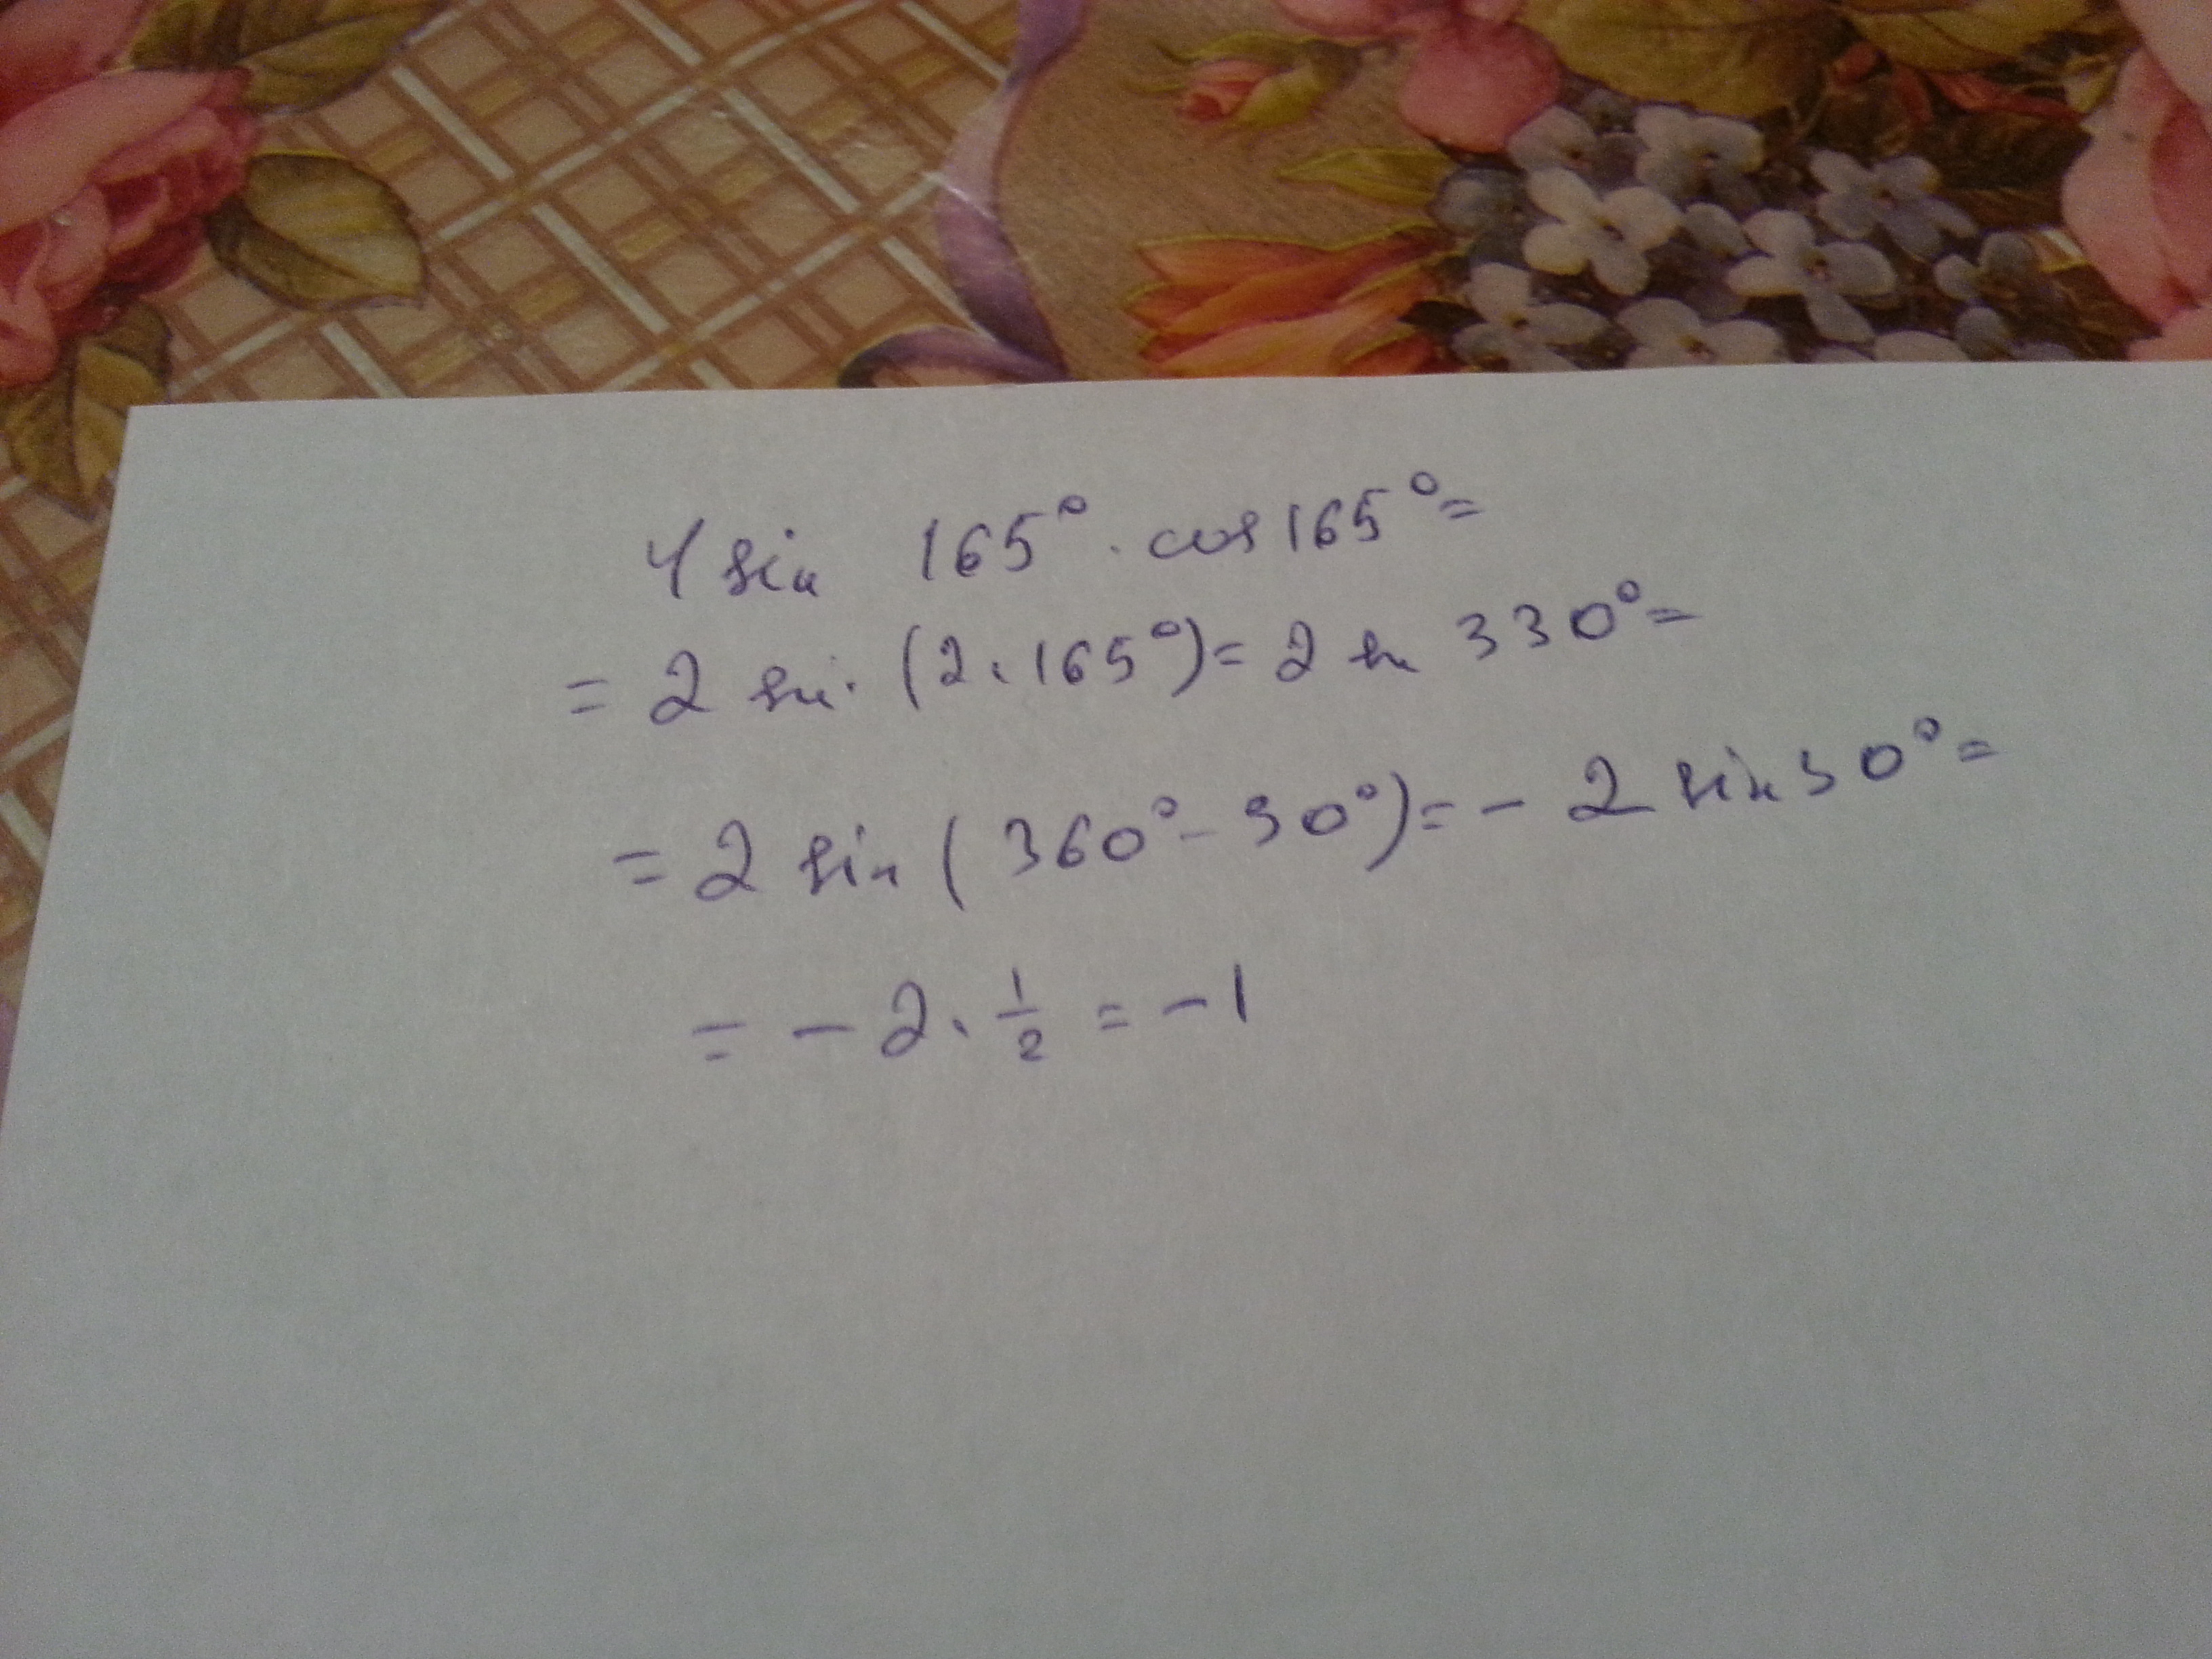 4 sin 165° · cos 165° =
= 2 sin (2 · 165°) = 2 sin 330° =
= 2 sin (360° - 30°) = - 2 sin 30° =
= - 2 · 1/2 = - 1